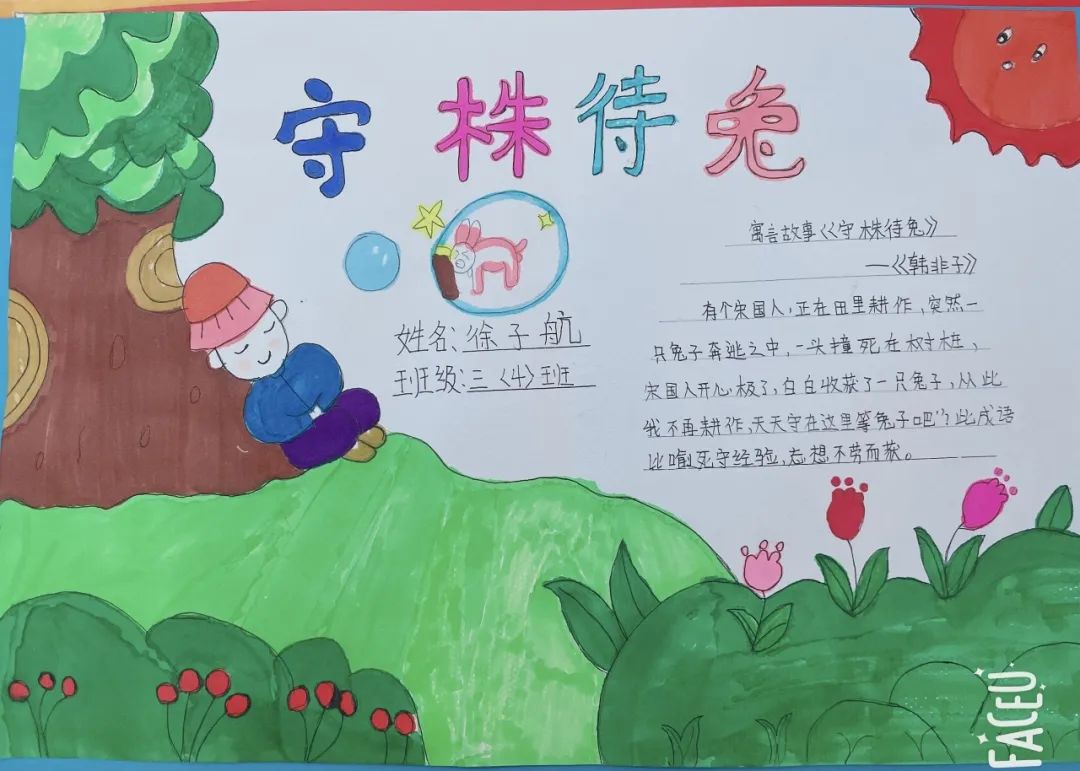 守株待兔
寓言故事《守株待兔》
—《韩非子》
姓名:徐子航
班级:三〈4〉班
有个宋国人,正在田里耕作,突然一
只兔子奔逃之中,一头撞死在树桩,
宋国人开心极了,白白收获了一只兔子,从此
我不再耕作,天天守在这里等兔子吧”?此成语
比喻死守经验,忘想不劳而获。
FACEU